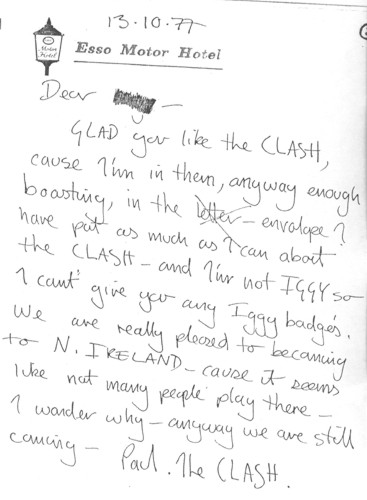 13.10.77
Motor
Hotel
Esso Motor Hotel
Dear —
GLAD you like the CLASH,
cause I'm in them, anyway enough
boasting, in the letter — envalope I
have put as much as I can about
the CLASH — and I'm not IGGY so
I cant' give you any Iggy badges.
We are really pleased to becoming
to N. IRELAND — cause it seems
like not many people play there —
I wonder why — anyway we are still
coming — Paul. The CLASH.